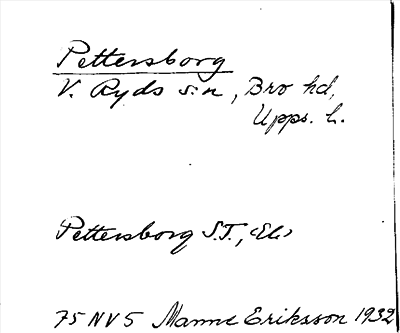 Pettersborg
V. Ryds sn, Bro hd,
Upps. l.
Pettersborg S.T., (Ek)
75 NV 5 Manne Eriksson 1932